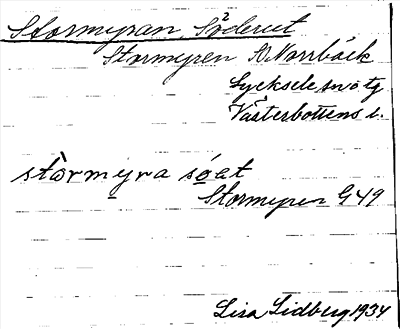 Stormyran Söderut
Stormyren N. Norrbäck
Lycksele snötg
Västerbottens l.
stòrmyra so̤at
Stormyren G 49
Lisa Lidberg 1934